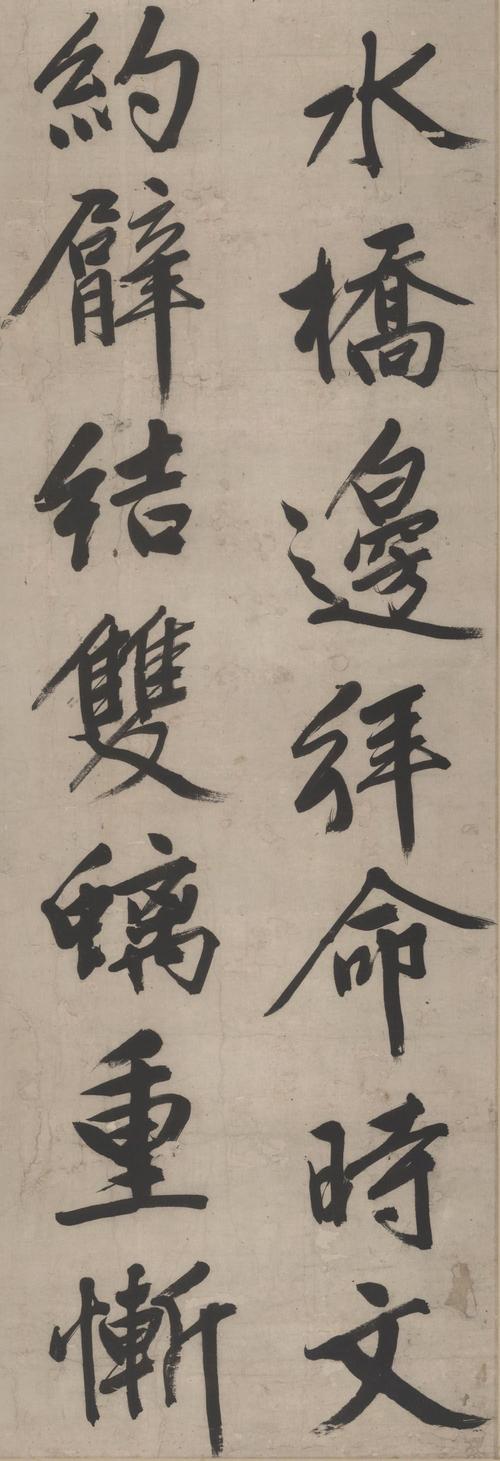 水橋邊拜命時文
約臂結雙螭重慚